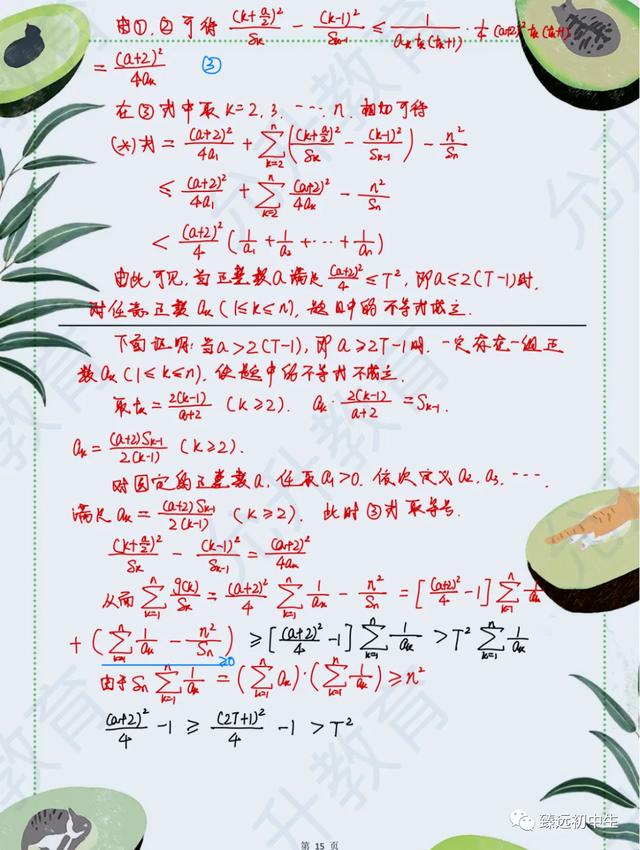 由①、②可得 (k+a/2)²/Sₖ - (k-1)²/Sₖ₋₁ ≤ 1/(aₖtₖ(tₖ+1)) · 1/4 (a+2)² tₖ(tₖ+1)
= (a+2)²/4aₖ ③
在③式中取 k=2, 3, ⋯, n. 相加可得
(*)式 = (a+2)²/4a₁ + ∑ₖ₌₂ⁿ ((k+a/2)²/Sₖ - (k-1)²/Sₖ₋₁) - n²/Sₙ
≤ (a+2)²/4a₁ + ∑ₖ₌₂ⁿ (a+2)²/4aₖ - n²/Sₙ
< (a+2)²/4 (1/a₁ + 1/a₂ + ⋯ + 1/aₙ)
由此可见, 当正整数a满足 (a+2)²/4 ≤ T², 即a≤2(T-1)时,
对任意正数 aₖ (1≤k≤n), 题目中的不等式成立.
下面证明: 当a>2(T-1), 即 a≥2T-1时, 一定存在一组正
数aₖ(1≤k≤n), 使题中的不等式不成立.
取tₖ = 2(k-1)/(a+2) (k≥2). aₖ · 2(k-1)/(a+2) = Sₖ₋₁.
aₖ = (a+2)Sₖ₋₁/2(k-1) (k≥2).
对固定的正整数a, 任取a₁>0, 依次定义a₂, a₃, ⋯.
满足 aₖ = (a+2)Sₖ₋₁/2(k-1) (k≥2). 此时③式取等号.
(k+a/2)²/Sₖ - (k-1)²/Sₖ₋₁ = (a+2)²/4aₖ
从而 ∑ₖ₌₁ⁿ g(k)/Sₖ = (a+2)²/4 ∑ₖ₌₁ⁿ 1/aₖ - n²/Sₙ = [(a+2)²/4 - 1] ∑ₖ₌₁ⁿ 1/aₖ
+ (∑ₖ₌₁ⁿ 1/aₖ - n²/Sₙ) ≥ [(a+2)²/4 - 1] ∑ₖ₌₁ⁿ 1/aₖ > T² ∑ₖ₌₁ⁿ 1/aₖ
≥0
由于 Sₙ ∑ₖ₌₁ⁿ 1/aₖ = (∑ₖ₌₁ⁿ aₖ)·(∑ₖ₌₁ⁿ 1/aₖ) ≥ n²
(a+2)²/4 - 1 ≥ (2T+1)²/4 - 1 > T²
臻远初中生
第 15 页